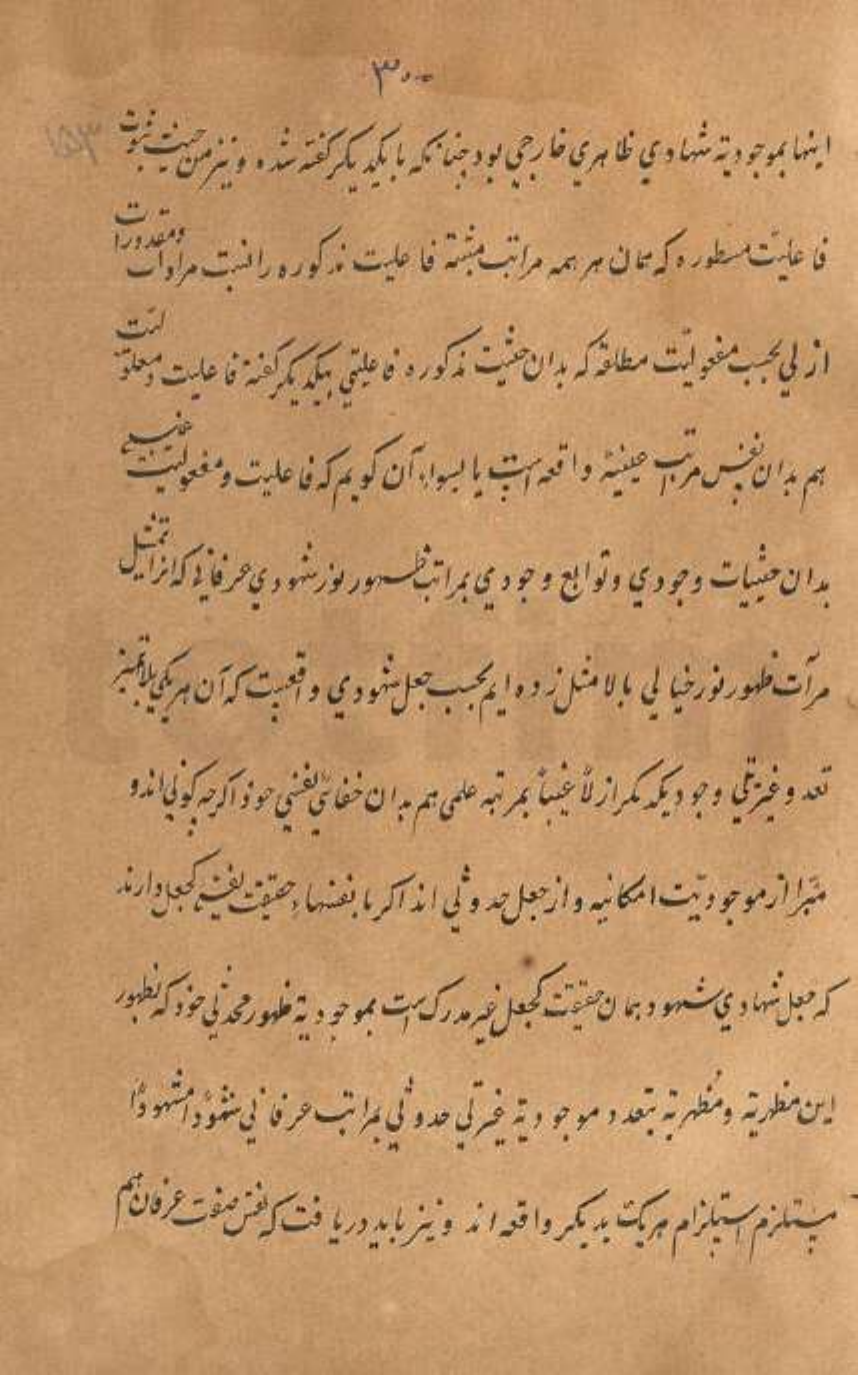 ۳۰۰
۱۵۳
اینها بموجودیة شهادي ظاهري خارجي بود چنانکه بایکدیکر کفته شده و نیز من حیث ثبوت
فاعلیّت مسطوره که همان هر همه مراتب مثبتة فاعلیت مذکوره را نسبت مرادات و مقدورات
ازلي بحسب مفعولیّت مطلقة که بدان حیثیت مذکوره فاعلیتي بیکدیکر کفته فاعلیت و معلولیّت
هم بدان نفس مراتب عینیة واقعه است یا بسواء آن کویم که فاعلیت و مفعولیت غیبي
بدان حیثیات وجودي و توابع وجودي بمراتب ظهور نور شهودي عرفاني که از تمثیل
مرآت ظهور نور خیالي بالا مثل زده ایم بحسب جعل شهودي واقعیت که آن هر یکي بلا تمیز
تعد و غیریّتي وجود یکدیکر ازلاً غیباً بمرتبه علمي هم بدان خفائي نفسي خود اکرچه کوني اند و
مبّرا از موجودیّت امکانیه و از جعل حدوثي اند اکر با نفسها حقیقت نفسي کجعل دارند
که جعل شهادي شهود همان حقیقت کجعل غیر مدرک است بموجودیة ظهور محدثي خود که بظهور
این مظهریّة و مُظهریّة بتعدد موجودیة غیریّتي حدوثي بمراتب عرفاني شهوداً مشهوداً
مستلزم استلزام هریک بدیکر واقعه اند و نیز باید دریافت که نفس صفت عرفان هم